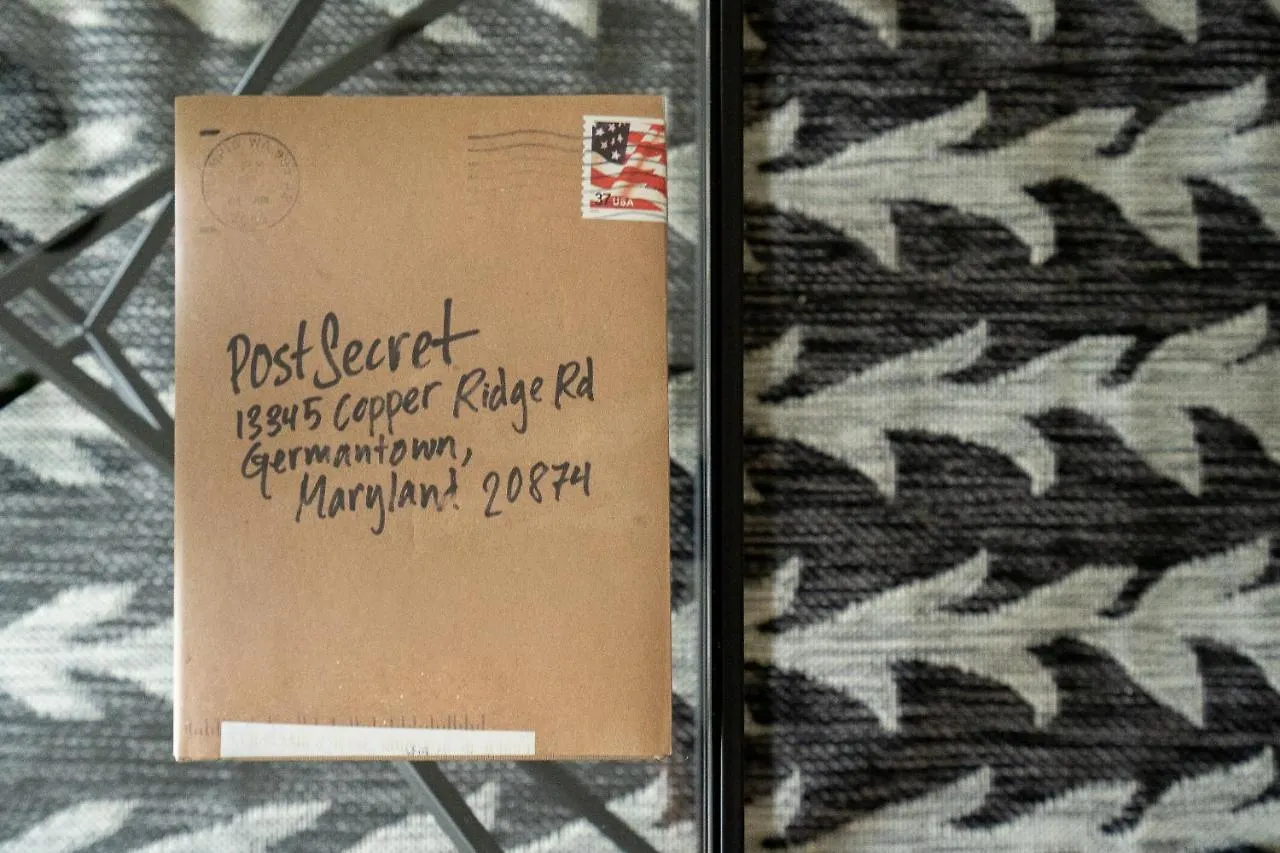 37 USA
PostSecret
13345 Copper Ridge Rd
Germantown,
Maryland 20874